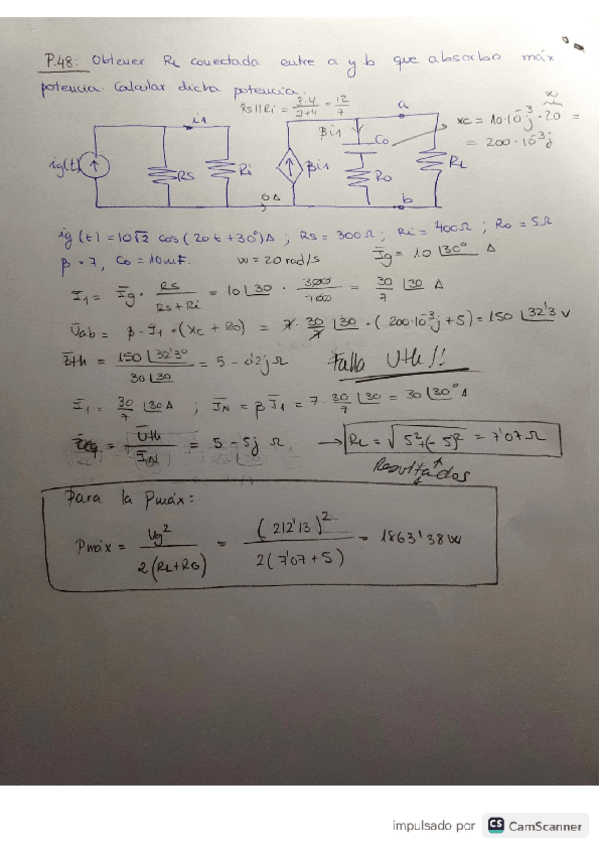 P.48: Obtener RL conectada entre a y b que absorba máx
potencia. Calcular dicha potencia.
Rs||Ri = 3.4/3+4 = 12/7
i1
a
w
xc = 10·10^-3 j · 20 =
= 200·10^-3 j
βi1
Co
ig(t)
RS
Ri
βi1
Ro
RL
b
ig(t) = 10√2 cos(20t+30°)A ; Rs = 300Ω ; Ri = 400Ω ; Ro = 5Ω
β = 7, Co = 10mF. w = 20 rad/s Ig = 10∠30° A
I1 = Ig · RS/(RS+Ri) = 10∠30 · 3000/700 = 30/7 ∠30 A
Uab = β·I1·(xc+Ro) = 7·30/7 ∠30·(200·10^-3 j+5) = 150∠32'3 V
Zth = 150∠32'30/30∠30 = 5 - 0'2j Ω Falla Uth!!
I1 = 30/7 ∠30A ; IN = βI1 = 7·30/7 ∠30 = 30∠30° A
= Uth/IN = 5-5j Ω → RL = √5²+(-5)² = 7'07Ω
Resultados
Para la Pmáx:
Pmáx = Ug²/2(RL+RG) = (212'13)²/2(7'07+5) = 1863'38W
impulsado por CS CamScanner